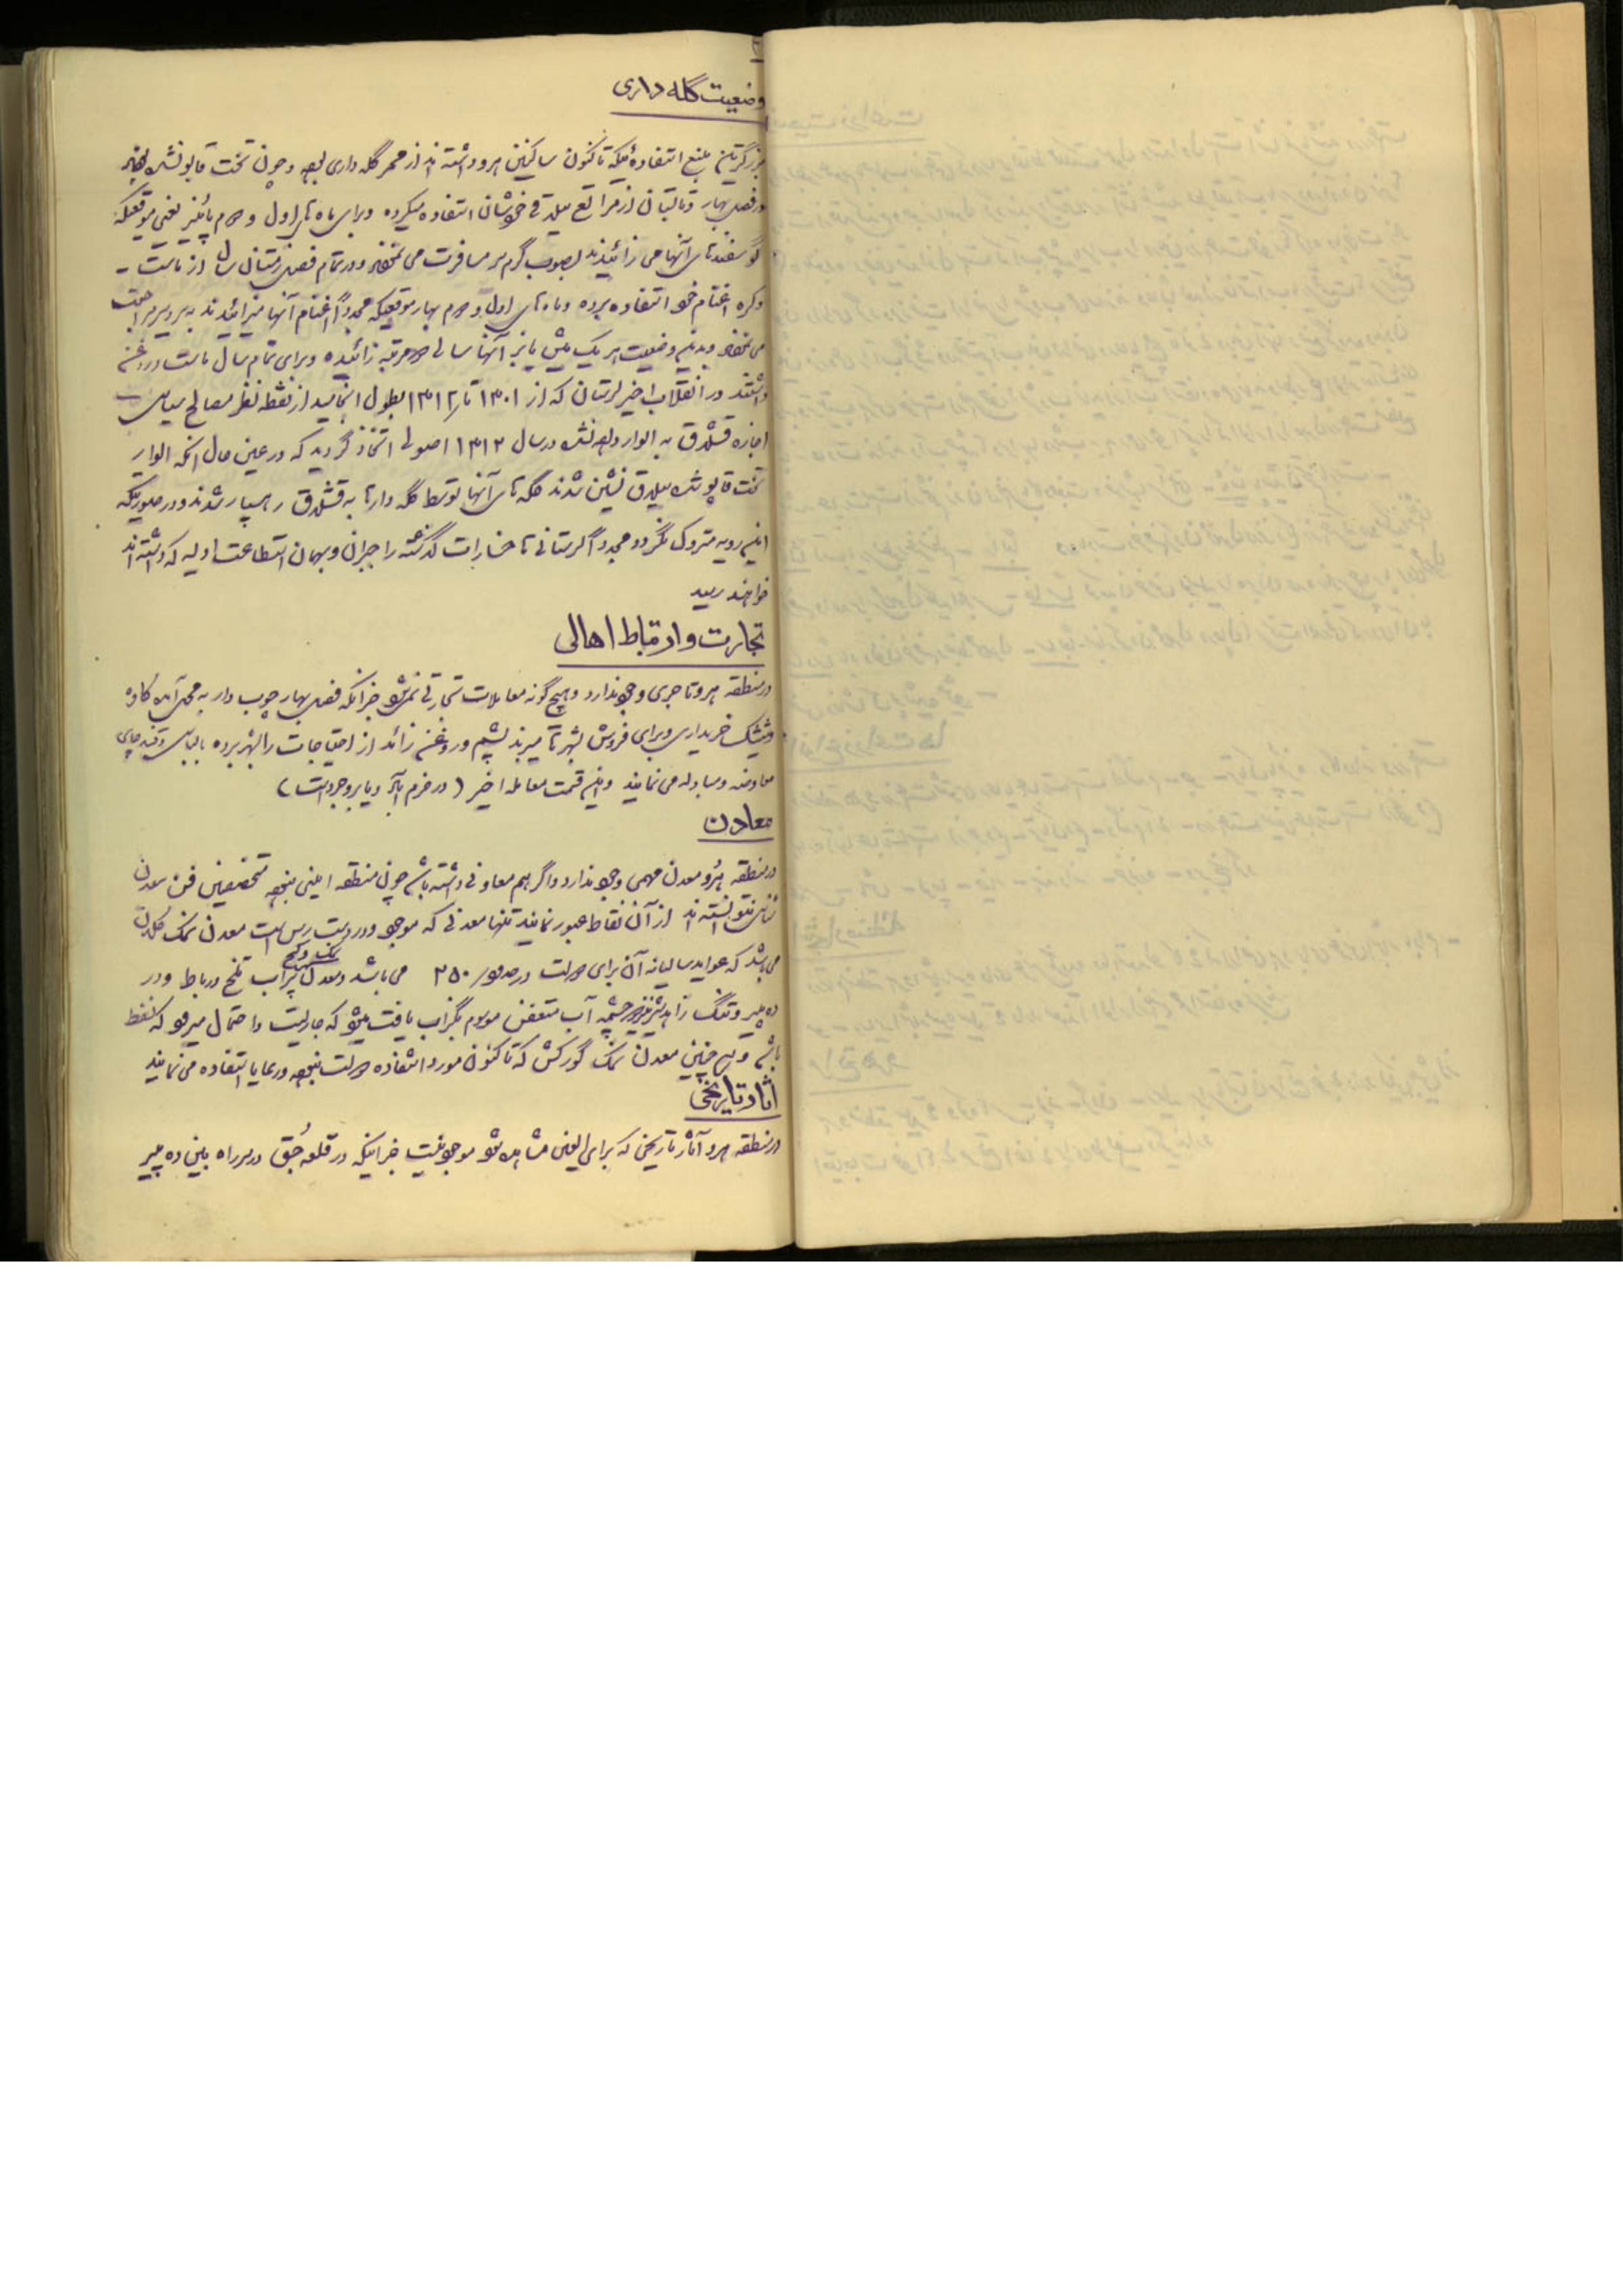 وضعیت گله داری
بزرگترین منبع استفاده ئیکه تاکنون ساکنین هرو داشته اند از ممر گله داری بوده و چون تخت قاپو نشده بودند
در فصل بهار و تابستان از مراتع ییلاقی خودشان استفاده میکرده و برای ماه های اول و دوم پائیز یعنی موقعیکه
گوسفندهای آنها می زائیدند بصوب گرمسیر مسافرت می نمودند و در تمام فصل زمستان سال از ماست -
و کره اغنام خود استفاده برده و ماه های اول و دوم بهار موقعیکه مجدداً اغنام آنها میزائیدند به سردسیر مراجعت
می نمودند و بدینوضعیت هر یک میش یا بز آنها سالی دو مرتبه زائیده و برای تمام سال ماست و روغن
داشتند در انقلاب اخیر لرستان که از ۱۳۰۱ تا ۱۳۱۲ بطول انجامید از نقطه نظر مصالح سیاسی
اجازه قشلاق به الوار داده نشد در سال ۱۳۱۳ اصولی اتخاذ گردید که در عین حال آنکه الوار
تخت قاپو شده ییلاق نشین شدند گله های آنها توسط گله دارها به قشلاق رهسپار شدند و در صورتیکه
این رویه متروک نگردد مجدداً لرستانی ها خسارات گذشته را جبران و بهمان استطاعت اولیه که داشته اند
خواهند رسید
تجارت و ارتباط اهالی
در منطقه هرو تاجری وجود ندارد و هیچ گونه معاملات تجارتی نمیشود جز آنکه فصل بهار چوب دار به محل آمده گاو
و شیشک خریداری و برای فروش بشهرها میبرند پشم و روغن زائد از احتیاجات را بشهر برده با لباس و قند و چای
معاوضه و مبادله می نمایند و این قسمت معامله اخیر (در خرم آباد و یا بروجرد است)
معادن
در منطقه هرو معدن مهمی وجود ندارد و اگر هم معادنی داشته باشد چون منطقه ایمنی نبوده متخصصین فن معدن
شناسی نتوانسته اند از آن نقاط عبور نمایند تنها معدنی که موجود و در دست رس است معدن نمک
می باشد که عواید سالیانه آن برای دولت در حدود ۲۵۰ می باشد و معدن نمک و گچ تلخ در باط و در
ده پیر و تنگ زاهدشیر نیز چشمه آب متعفن موسوم بگراب یافت میشود که جاریست و احتمال میرود که نفط
باشد و همچنین معدن نمک گورکش که تاکنون مورد استفاده دولت نبوده و رعایا استفاده می نمایند
آثار تاریخی
در منطقه هرو آثار تاریخی که برای العین مشاهده شود موجود نیست جز اینکه در قلعه جُق در سر راه بین ده پیر